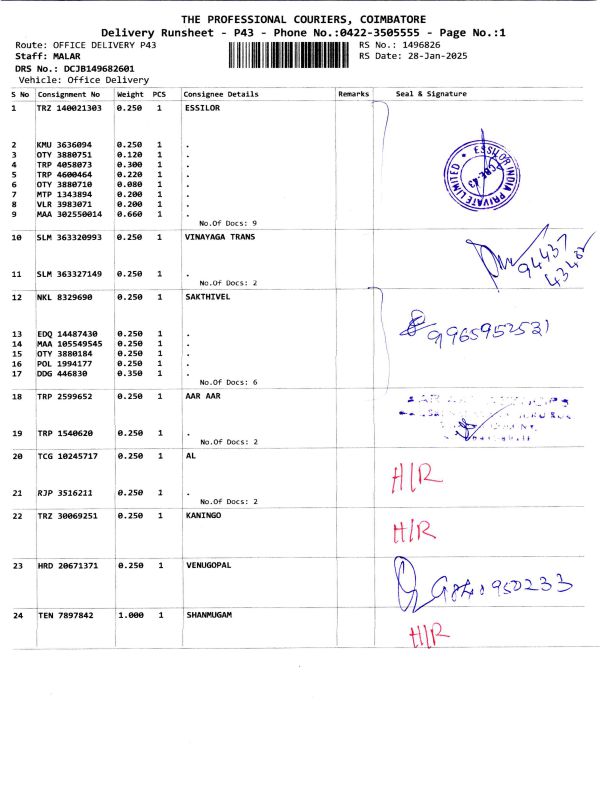 THE PROFESSIONAL COURIERS, COIMBATORE
Delivery Runsheet - P43 - Phone No.:0422-3505555 - Page No.:1
Route: OFFICE DELIVERY P43
RS No.: 1496826
Staff: MALAR
RS Date: 28-Jan-2025
DRS No.: DCJB149682601
Vehicle: Office Delivery
S No Consignment No Weight PCS Consignee Details Remarks Seal & Signature
1 TRZ 140021303 0.250 1 ESSILOR
2 KMU 3636094 0.250 1 .
3 OTY 3880751 0.120 1 .
4 TRP 4058073 0.300 1 .
5 TRP 4600464 0.220 1 .
6 OTY 3880710 0.080 1 .
7 MTP 1343894 0.200 1 .
8 VLR 3983071 0.200 1 .
9 MAA 302550014 0.660 1 .
No.Of Docs: 9
ESSILOR INDIA PRIVATE LIMITED
10 SLM 363320993 0.250 1 VINAYAGA TRANS
94437
11 SLM 363327149 0.250 1 .
No.Of Docs: 2
12 NKL 8329690 0.250 1 SAKTHIVEL
9965952531
13 EDQ 14487430 0.250 1 .
14 MAA 105549545 0.250 1 .
15 OTY 3880184 0.250 1 .
16 POL 1994177 0.250 1 .
17 DDG 446830 0.350 1 .
No.Of Docs: 6
18 TRP 2599652 0.250 1 AAR AAR
19 TRP 1540620 0.250 1 .
No.Of Docs: 2
20 TCG 10245717 0.250 1 AL
H/R
21 RJP 3516211 0.250 1 .
No.Of Docs: 2
22 TRZ 30069251 0.250 1 KANINGO
H/R
23 HRD 20671371 0.250 1 VENUGOPAL
24 TEN 7897842 1.000 1 SHANMUGAM
H/R